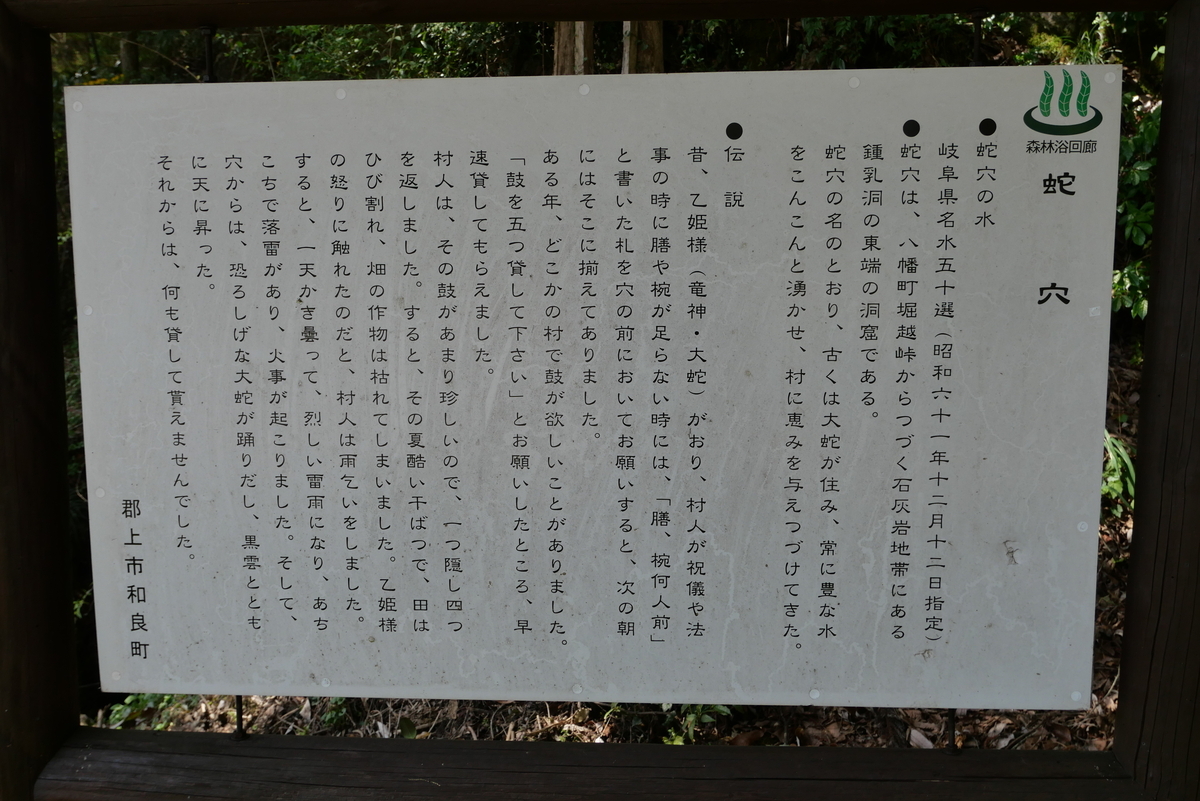 森林浴回廊
蛇穴
●蛇穴の水
岐阜県名水五十選(昭和六十一年十二月十二日指定)
●蛇穴は、八幡町堀越峠からつづく石灰岩地帯にある
鍾乳洞の東端の洞窟である。
蛇穴の名のとおり、古くは大蛇が住み、常に豊な水
をこんこんと湧かせ、村に恵みを与えつづけてきた。
●伝説
昔、乙姫様(竜神・大蛇)がおり、村人が祝儀や法
事の時に膳や椀が足らない時には、「膳、椀何人前」
と書いた札を穴の前においてお願いすると、次の朝
にはそこに揃えてありました。
ある年、どこかの村で鼓が欲しいことがありました。
「鼓を五つ貸して下さい」とお願いしたところ、早
速貸してもらえました。
村人は、その鼓があまり珍しいので、一つ隠し四つ
を返しました。すると、その夏酷い干ばつで、田は
ひび割れ、畑の作物は枯れてしまいました。乙姫様
の怒りに触れたのだと、村人は雨乞いをしました。
すると、一天かき曇って、烈しい雷雨になり、あち
こちで落雷があり、火事が起こりました。そして、
穴からは、恐ろしげな大蛇が踊りだし、黒雲ととも
に天に昇った。
それからは、何も貸して貰えませんでした。
郡上市和良町